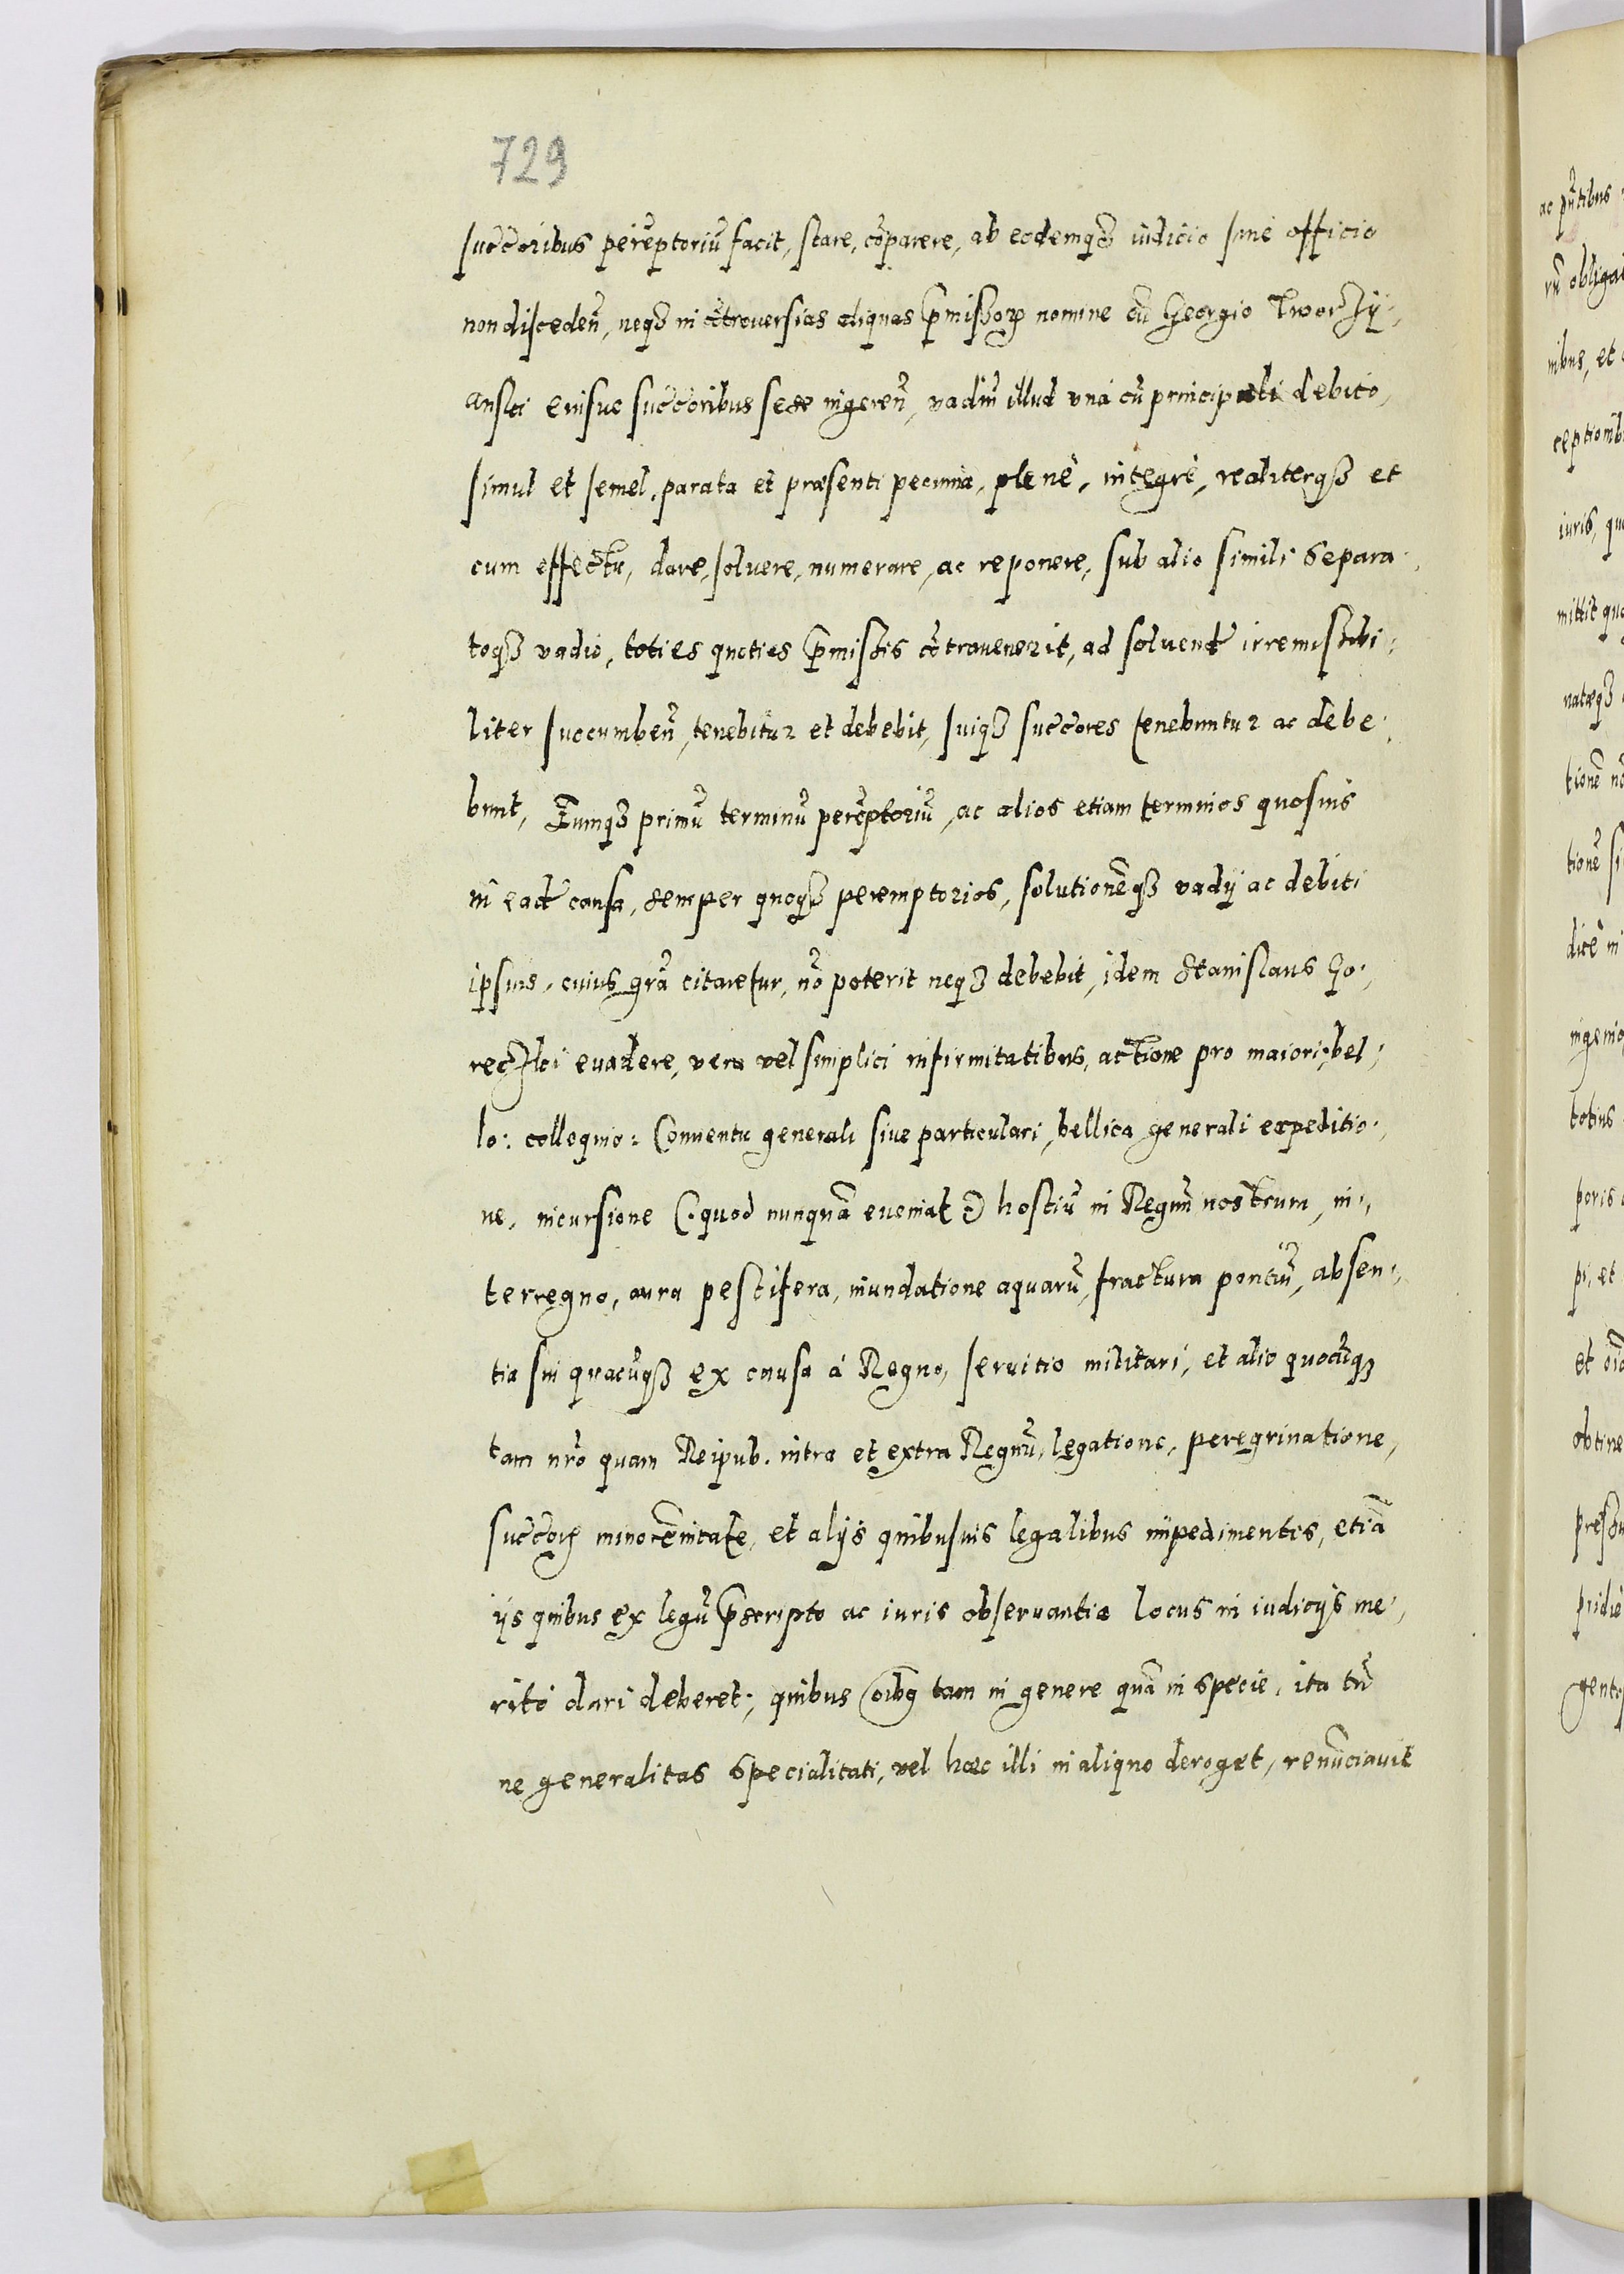 729
succōribus perēptoriū facit, stare, cōparere, ab eodemqȝ iudicio siue officio
non disceden̄, neqȝ in cōtrouersias aliquas p̄missoꝝ nomine cū Georgio Tworzÿ-
anski eiusue succōribus sese ingeren̄, vadiū illud vná cū principali debito,
simul et semel, parata et præsenti pecunia, plenè, integrè, realiterqȝ et
cum effectu, dare, soluere, numerare, ac reponere, sub alio simili separa-
toqȝ vadio, toties quoties p̄missis cōtrauenerit, ad soluend̄ irremissibi-
liter succumben̄, tenebitur et debebit, suiqȝ succōres tenebuntur ac debe-
bunt, Eumqȝ primū terminū perēptoriū, ac alios etiam terminos quosuis
in ead̄ causa, semper quoqȝ peremptorios, solutionēqȝ vadij ac debiti
ipsius, cuius grā citaretur, nō poterit neqȝ debebit, idem Stanislaus Go-
reczki euadere, vera vel simplici infirmitatibus, actione pro maiori: bel-
lo: colloquio: Conuentu generali siue particulari, bellica generali expeditio-
ne, incursione (:quod nunquā eueniat:) hostiū in Regnū nostrum, in-
terregno, aura pestifera, inundatione aquarū, fractura pontiū, absen-
tia sui quacūqȝ ex causa à Regno, seruitio militari, et alio quocūqȝ
tam nr̄o quam Reipub. intra et extra Regnū, legatione, peregrinatione,
succōꝝ minorēnitate, et alijs quibusuis legalibus impedimentis, etiā
ijs quibus ex legū p̄scripto ac iuris obseruantia locus in iudicijs me-
ritò dari deberet; quibus oībꝯ tam in genere quā in specie, ita tn̄
ne generalitas specialitati, vel hæc illi in aliquo deroget, renūciauit